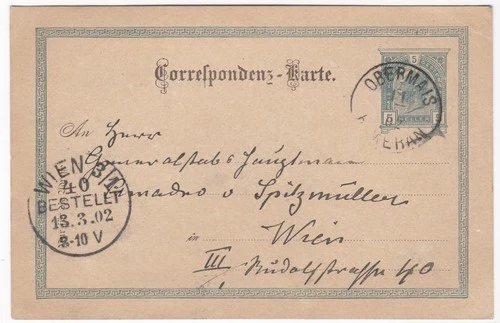 5
5
HELLER
5
Correspondenz-Karte.
OBERMAIS
MERAN
An Herrn
Generalstabs Hauptmann
Amadeo v Spitzmüller
in Wien
III Rudolfstrasse 40
WIEN 3/1
40
BESTELLT
13.3.02
8-10 V